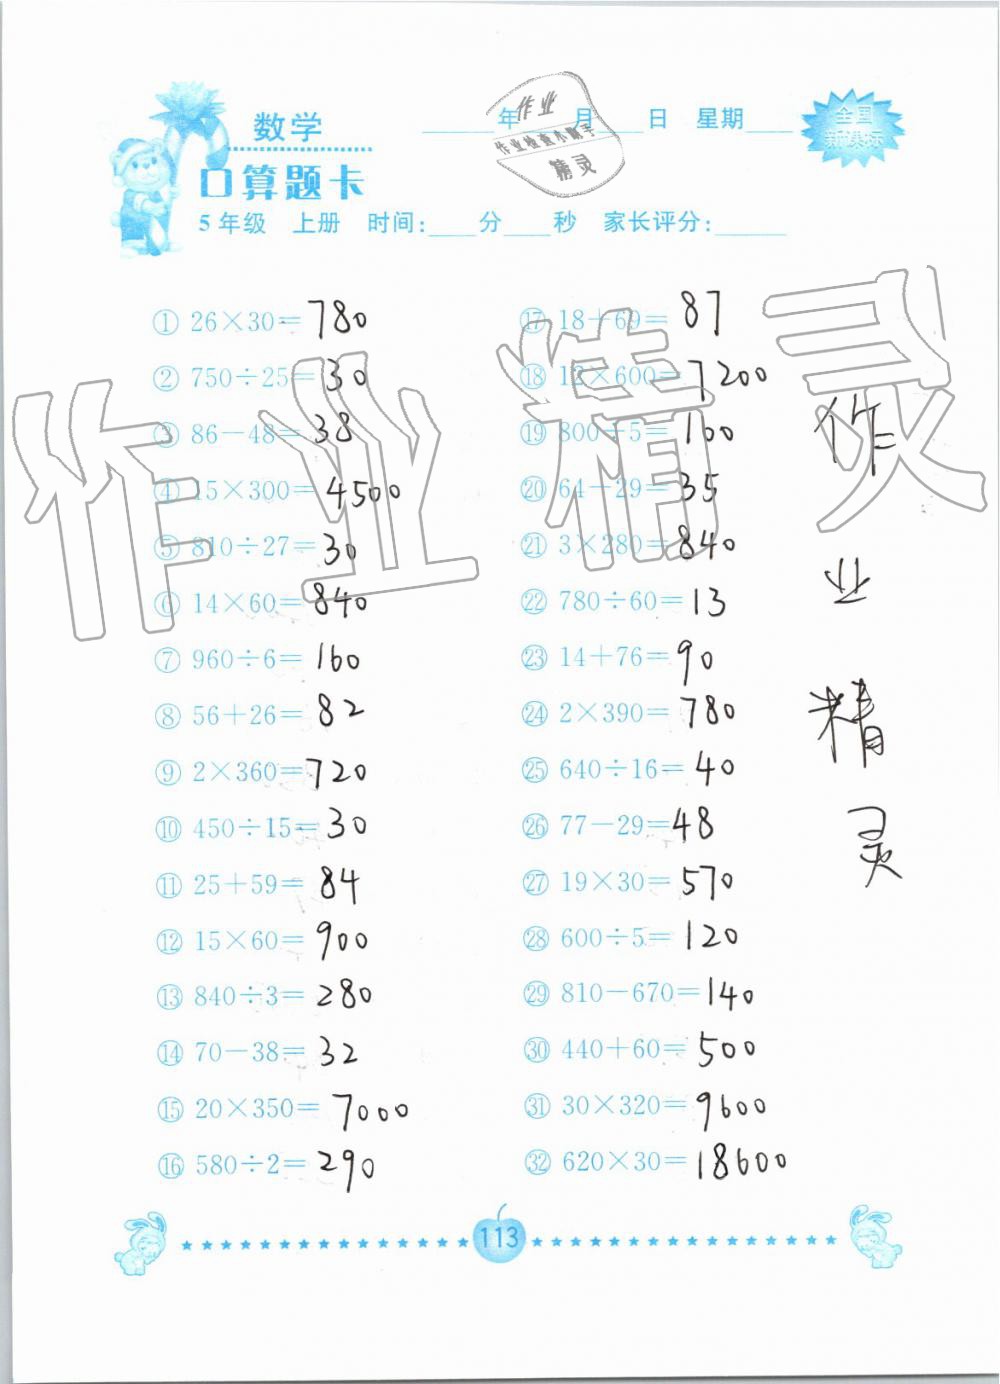 数学
口算题卡
____年____月____日 星期____
全国
作业
作业检查小助手
精灵
5年级 上册 时间:____分____秒 家长评分:______
① 26×30=780
② 750÷25=30
③ 86-48=38
④ 15×300=4500
⑤ 810÷27=30
⑥ 14×60=840
⑦ 960÷6=160
⑧ 56+26=82
⑨ 2×360=720
⑩ 450÷15=30
⑪ 25+59=84
⑫ 15×60=900
⑬ 840÷3=280
⑭ 70-38=32
⑮ 20×350=7000
⑯ 580÷2=290
⑰ 18+69=87
⑱ 12×600=7200
⑲ 800÷5=160
⑳ 64-29=35
㉑ 3×280=840
㉒ 780÷60=13
㉓ 14+76=90
㉔ 2×390=780
㉕ 640÷16=40
㉖ 77-29=48
㉗ 19×30=570
㉘ 600÷5=120
㉙ 810-670=140
㉚ 440+60=500
㉛ 30×320=9600
㉜ 620×30=18600
作业精灵
作
业
精
灵
113